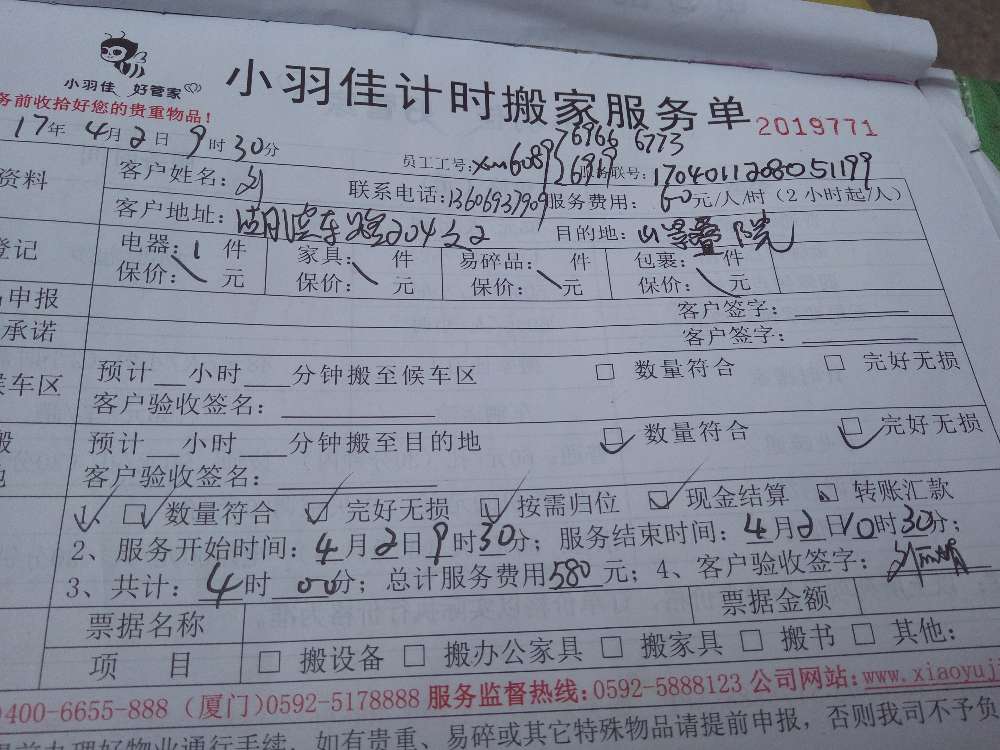 小羽佳 好管家
小羽佳计时搬家服务单 2019771
务前收拾好您的贵重物品！
17年4月2日9时30分
6966 6773
员工工号：xm6089 6919 联号：1704011208051199
资料 客户姓名：刘 联系电话：13606937909 服务费用：60元/人/时（2小时起/人）
客户地址：湖滨东路204之2 目的地：山 叠院
登记 电器：1件 家具： 件 易碎品： 件 包裹： 件
保价： 元 保价： 元 保价： 元 保价： 元
申报 客户签字：
承诺 客户签字：
候车区 预计 小时 分钟搬至候车区 □ 数量符合 □ 完好无损
客户验收签名：
搬 预计 小时 分钟搬至目的地 ☑ 数量符合 ☑ 完好无损
地 客户验收签名：
1、☑ 数量符合 ☑ 完好无损 ☑ 按需归位 ☑ 现金结算 □ 转账汇款
2、服务开始时间：4月2日9时30分；服务结束时间：4月2日10时30分；
3、共计：4时00分；总计服务费用580元；4、客户验收签字：刘
票据名称 票据金额
项 目 □ 搬设备 □ 搬办公家具 □ 搬家具 □ 搬书 □ 其他：
400-6655-888（厦门）0592-5178888 服务监督热线：0592-5888123 公司网站：www.xiaoyuji
提前办理好物业通行手续，如有贵重、易碎或其它特殊物品请提前申报，否则我司不予负